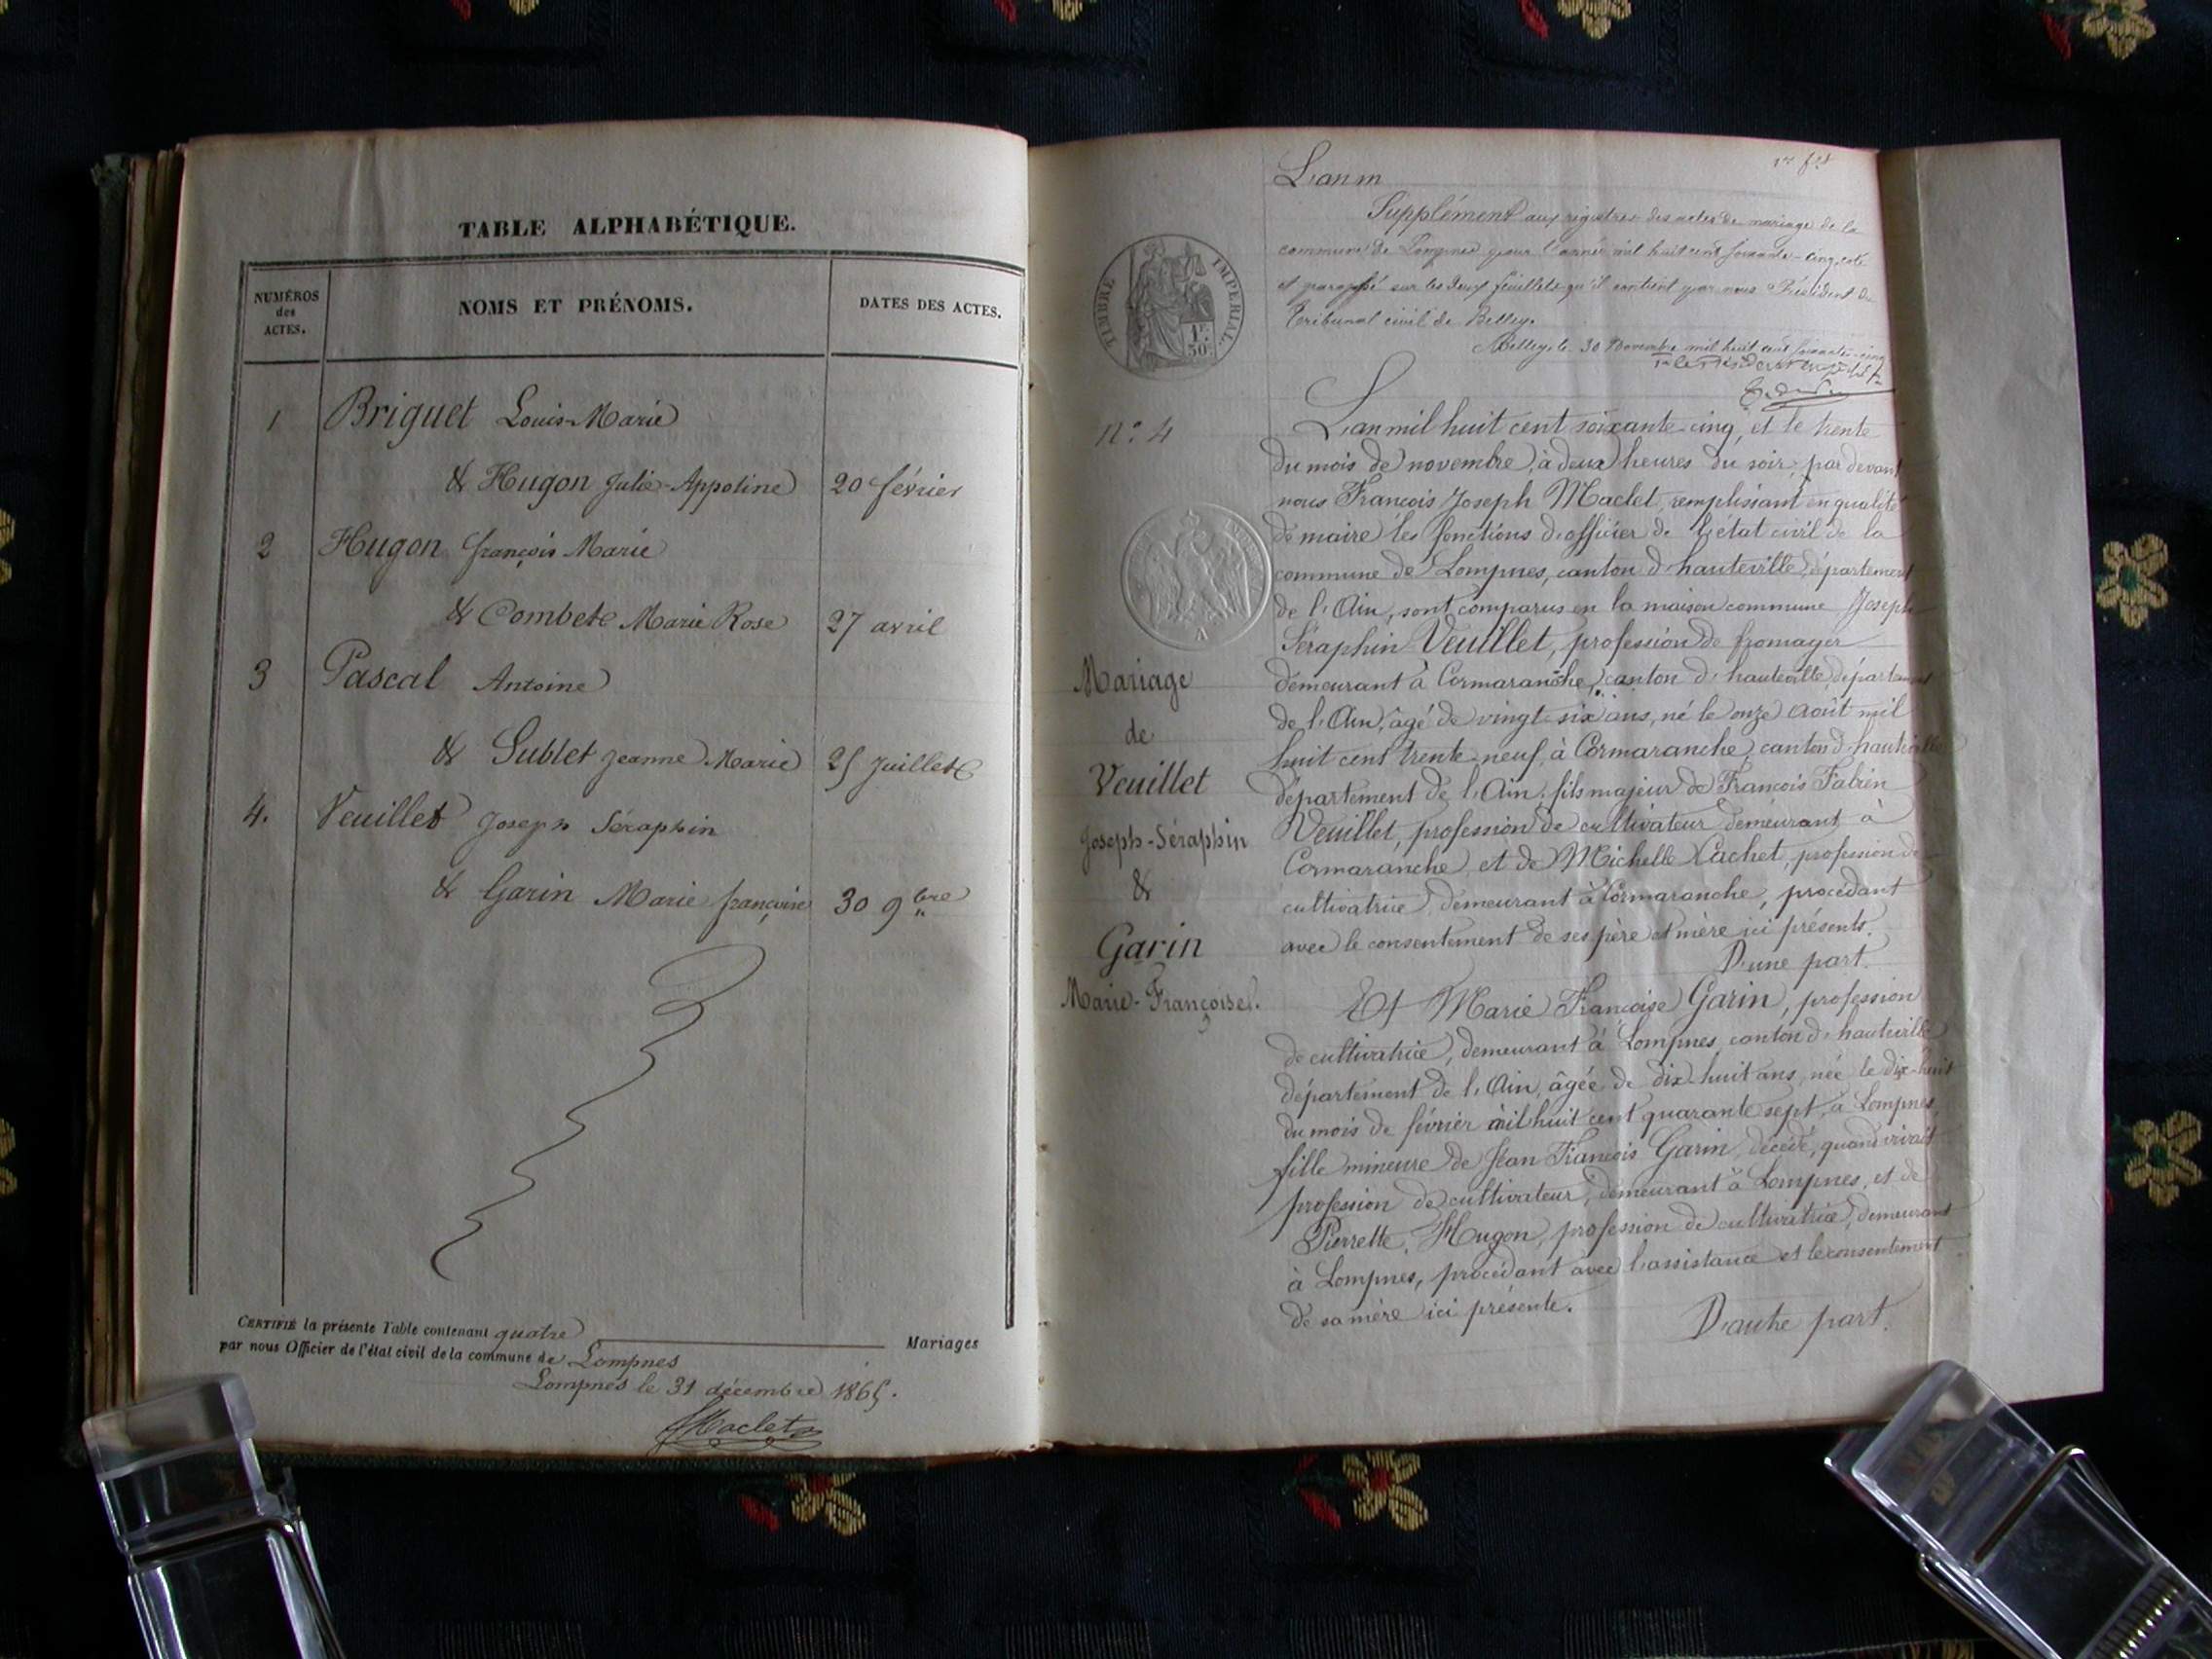 TABLE ALPHABÉTIQUE.
NUMÉROS
des
ACTES.
NOMS ET PRÉNOMS.
DATES DES ACTES.
1 Briguet Louis-Marie
& Hugon Julie-Appoline 20 février
2 Hugon françois Marie
& Combete Marie Rose 27 avril
3 Pascal Antoine
& Sublet Jeanne Marie 25 Juillet
4. Veuillet Joseph Séraphin
& Garin Marie françoise 30 9bre
CERTIFIÉ la présente Table contenant quatre Mariages
par nous Officier de l'état civil de la commune de Lompnes
Lompnes le 31 décembre 1865.
Maclet
L'an m
Supplément aux registres des actes de mariage de la
commune de Lompnes pour l'année mil huit cent soixante-cinq, coté
et paraphé sur les deux feuillets qu'il contient par nous Président du
Tribunal civil de Belley.
Belley, le 30 Novembre mil huit cent soixante-cinq
TIMBRE IMPÉRIAL
1F.
50c.
n° 4
Mariage
de
Veuillet
Joseph-Séraphin
&
Garin
Marie-Françoise.
L'an mil huit cent soixante-cinq, et le trente
du mois de novembre, à deux heures du soir, par devant
nous François Joseph Maclet, remplissant en qualité
de maire les fonctions d'officier de l'état civil de la
commune de Lompnes, canton d'hauteville, département
de l'Ain, sont comparus en la maison commune Joseph
Séraphin Veuillet, profession de fromager
demeurant à Cormaranche, canton d'hauteville, département
de l'Ain, âgé de vingt-six ans, né le onze août mil
huit cent trente-neuf, à Cormaranche, canton d'hauteville
département de l'Ain, fils majeur de François Fabien
Veuillet, profession de cultivateur demeurant à
Cormaranche, et de Michelle Cachet, profession de
cultivatrice, demeurant à Cormaranche, procédant
avec le consentement de ses père et mère ici présents.
D'une part.
Et Marie Françoise Garin, profession
de cultivatrice, demeurant à Lompnes, canton d'hauteville
département de l'Ain, âgée de dix-huit ans, née le dix-huit
du mois de février mil huit cent quarante sept, à Lompnes,
fille mineure de Jean François Garin, décédé, quand vivait
profession de cultivateur, demeurant à Lompnes, et de
Pierrette Hugon, profession de cultivatrice, demeurant
à Lompnes, procédant avec l'assistance et le consentement
de sa mère ici présente.
D'autre part.